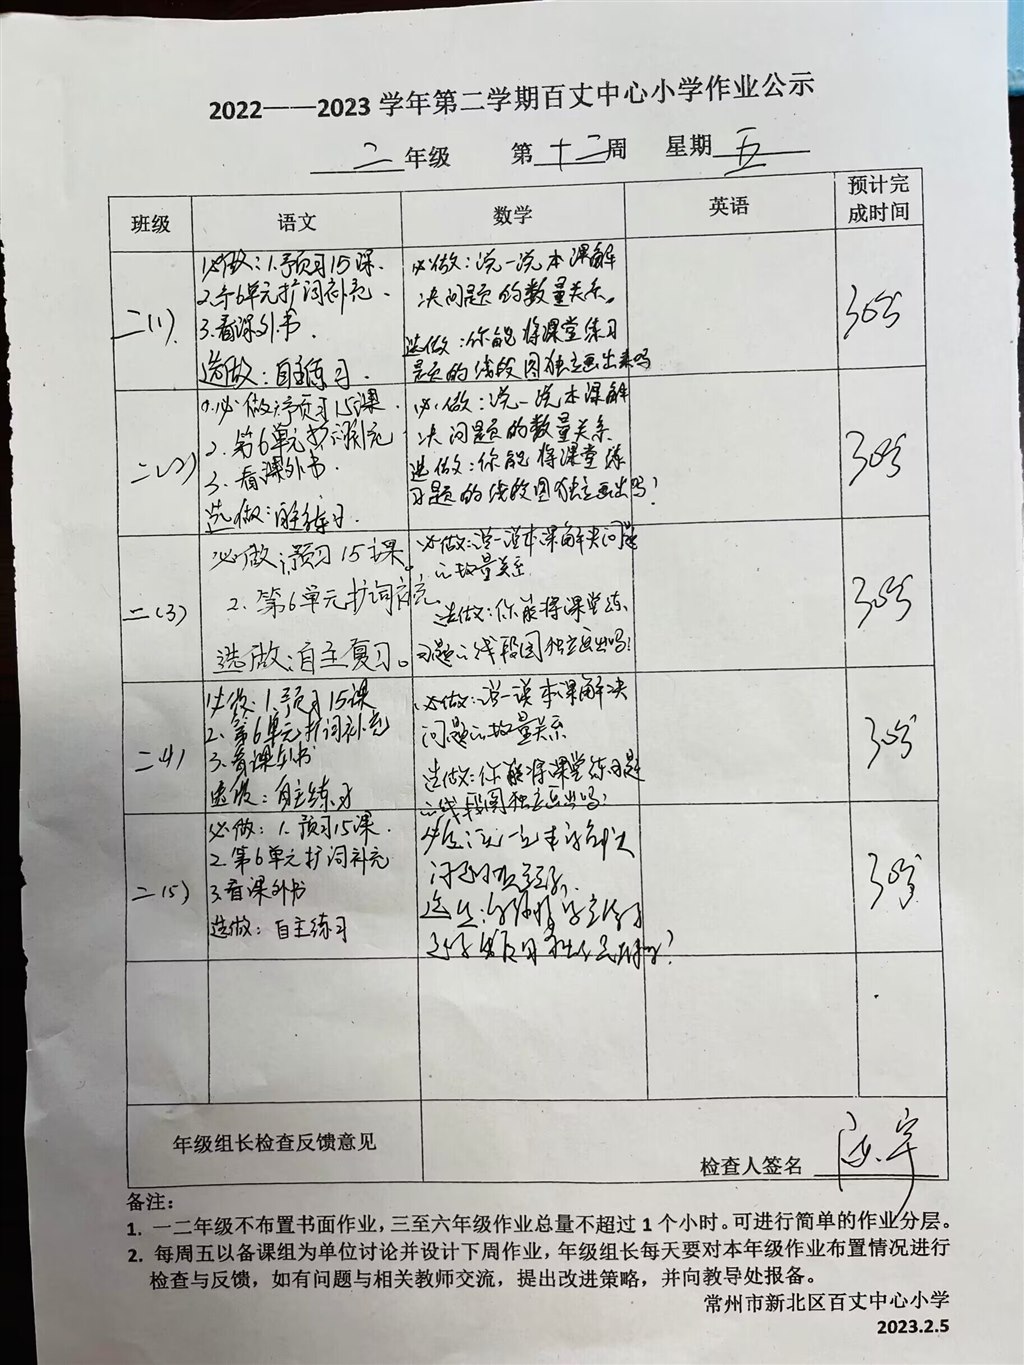 2022——2023 学年第二学期百丈中心小学作业公示
二 年级 第 十二 周 星期 五
班级 语文 数学 英语 预计完成时间
二(1)
必做：1.预习15课.
2.第6单元扩词补充.
3.看课外书.
选做：自主练习.
必做：说一说本课解
决问题的数量关系。
选做：你能将课堂练习
题的线段图独立画出来吗
30分
二(2)
1.必做：预习15课.
2.第6单元扩词补充
3.看课外书.
选做：自主练习.
必做：说一说本课解
决问题的数量关系
选做：你能将课堂练
习题的线段图独立画出吗？
30分
二(3)
必做：1.预习15课。
2.第6单元扩词补充.
选做：自主复习。
必做：说一说本课解决问题
的数量关系.
选做：你能将课堂练
习题的线段图独立画出吗！
30分
二(4)
必做：1.预习15课
2.第6单元扩词补充
3.看课外书
选做：自主练习
必做：说一说本课解决
问题的数量关系
选做：你能将课堂练习题
的线段图独立画出吗？
30分
二(5)
必做：1.预习15课.
2.第6单元扩词补充
3.看课外书
选做：自主练习
30分
年级组长检查反馈意见
检查人签名
备注：
1. 一二年级不布置书面作业，三至六年级作业总量不超过 1 个小时。可进行简单的作业分层。
2. 每周五以备课组为单位讨论并设计下周作业，年级组长每天要对本年级作业布置情况进行
检查与反馈，如有问题与相关教师交流，提出改进策略，并向教导处报备。
常州市新北区百丈中心小学
2023.2.5